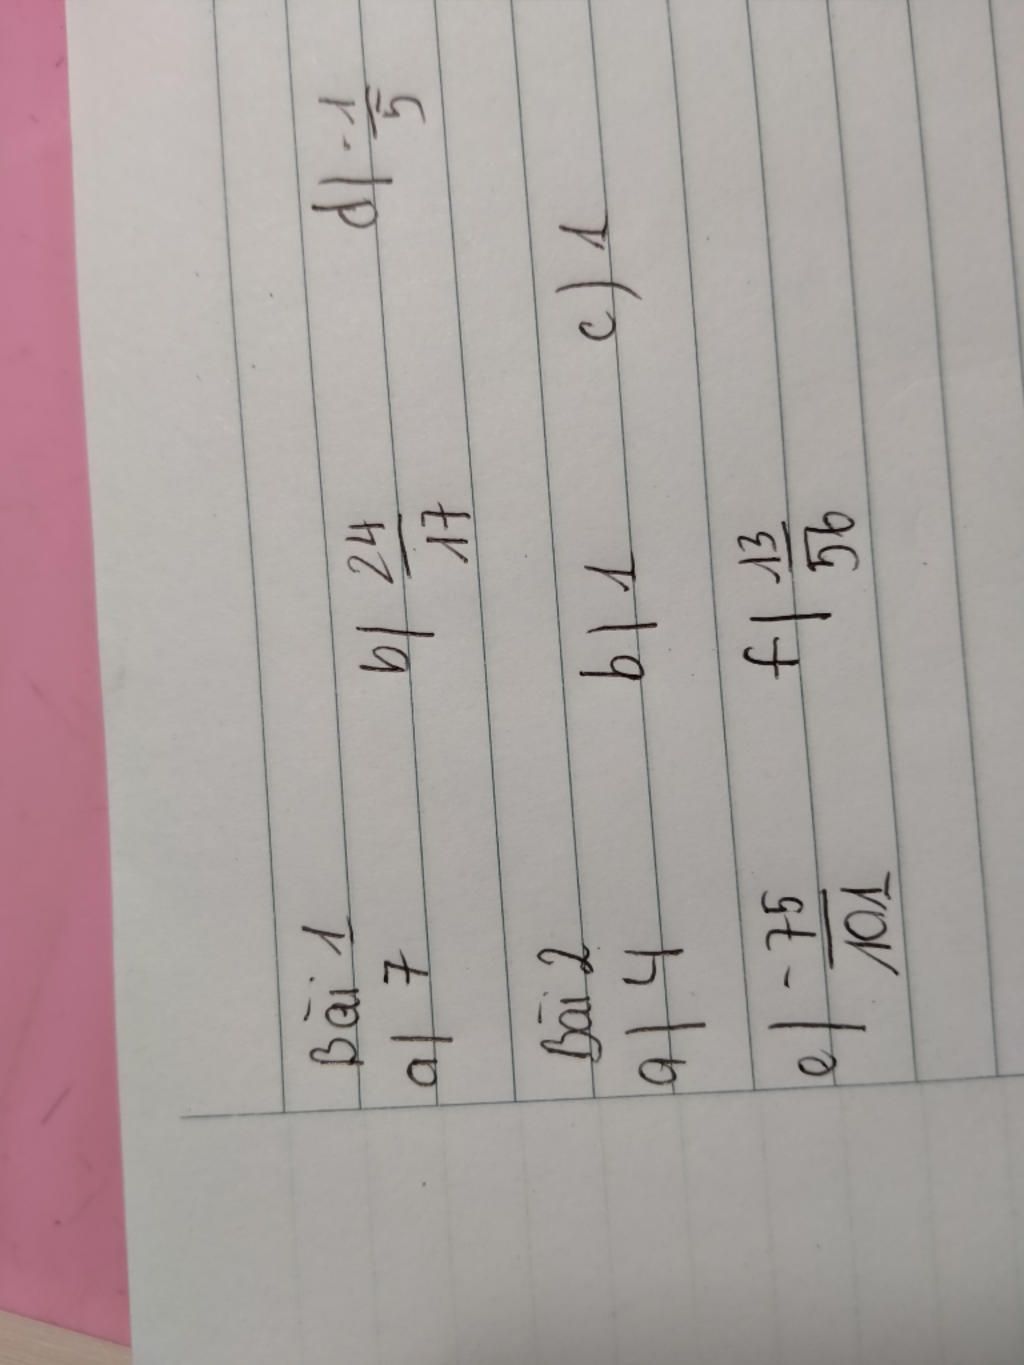 Bài 1
a) 7 b) 24/17 d) -1/5
Bài 2
a) 4 b) 1 c) 1
e) -75/101 f) 13/56